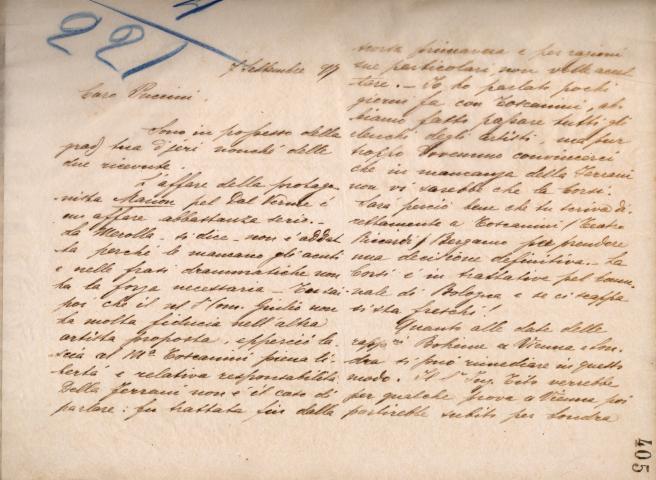 221
7 Settembre 97
Caro Puccini,
Sono in possesso della
grad) tua d'jeri nonchè delle
due ricevute.
L'affare della protago-
nista Manon pel Dal Verme è
un affare abbastanza serio.-
La Merolla - si dice - non è adat
ta perchè le mancano gli acuti
e nelle frasi drammatiche non
ha la forza necessaria - Tu sai
poi che il Com. Giulio non
ha molta fiducia nell'altra
artista proposta, epperciò la-
scia al Mo Toscanini piena li-
bertà e relativa responsabilità
Della Ferrani non è il caso di
parlare: fu trattata fin dalla
scorsa primavera e per ragioni
sue particolari non volle accet-
tare. - Io, ho parlato pochi
giorni fa con Toscanini, ab-
biamo fatto passare tutti gli
elenchi degli artisti, ma pur
troppo dovemmo convincerci
che in mancanza della Ferrani
non vi sarebbe che la Corsi.
Sarà perciò bene che tu scriva di-
rettamente a Toscanini (Teatro
Riccardi) Bergamo per prendere
una decisione definitiva. - La
Corsi è in trattative pel Comu-
nale di Bologna e se ci scappa
si sta freschi!
Quanto alle date delle
rappni Bohème a Vienna e Lon-
dra si può rimediare in questo
modo. Il Sig. Tito verrebbe
per qualche prova a Vienna poi
partirebbe subito per Londra
405